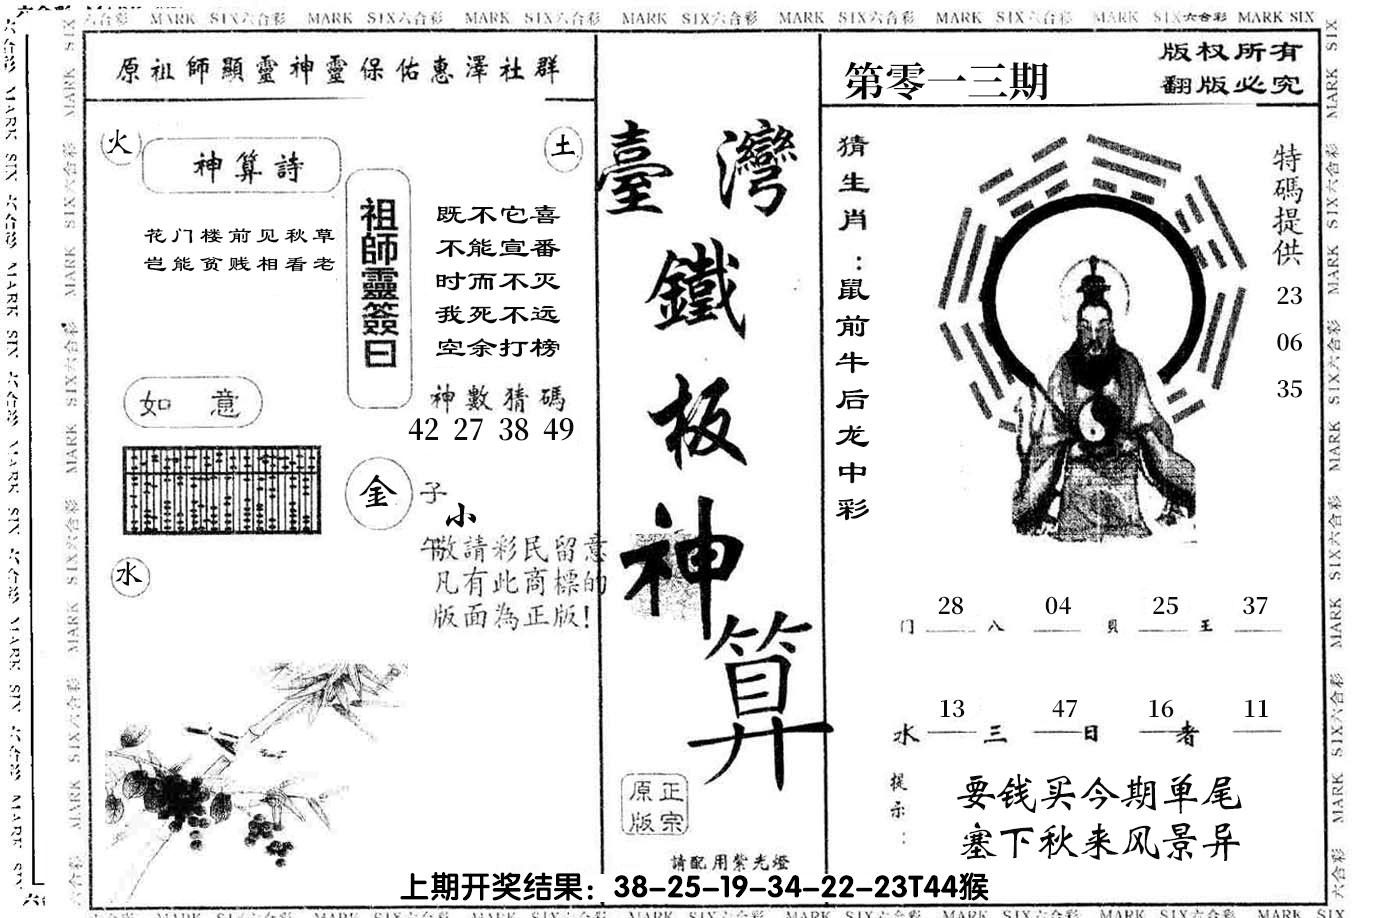 MARK SIX六合彩 MARK SIX六合彩 MARK SIX六合彩 MARK SIX六合彩 MARK SIX六合彩 MARK SIX六合彩 MARK SIX六合彩 MARK SIX
原祖師顯靈神靈保佑惠澤社群
火
神算詩
土
花门楼前见秋草
岂能贫贱相看老
祖師靈簽曰
既不它喜
不能宣番
时而不灭
我死不远
空余打榜
神數猜碼
42 27 38 49
如意
金
子
小
午
敬請彩民留意
凡有此商標的
版面為正版!
水
臺灣
鐵
板
神
算
正宗
原版
請配用紫光燈
第零一三期
版权所有
翻版必究
猜生肖:鼠前牛后龙中彩
特碼提供
23
06
35
28 04 25 37
门 八 貝 王
13 47 16 11
水 三 日 者
提示:
要钱买今期单尾
塞下秋来风景异
上期开奖结果：38-25-19-34-22-23T44猴